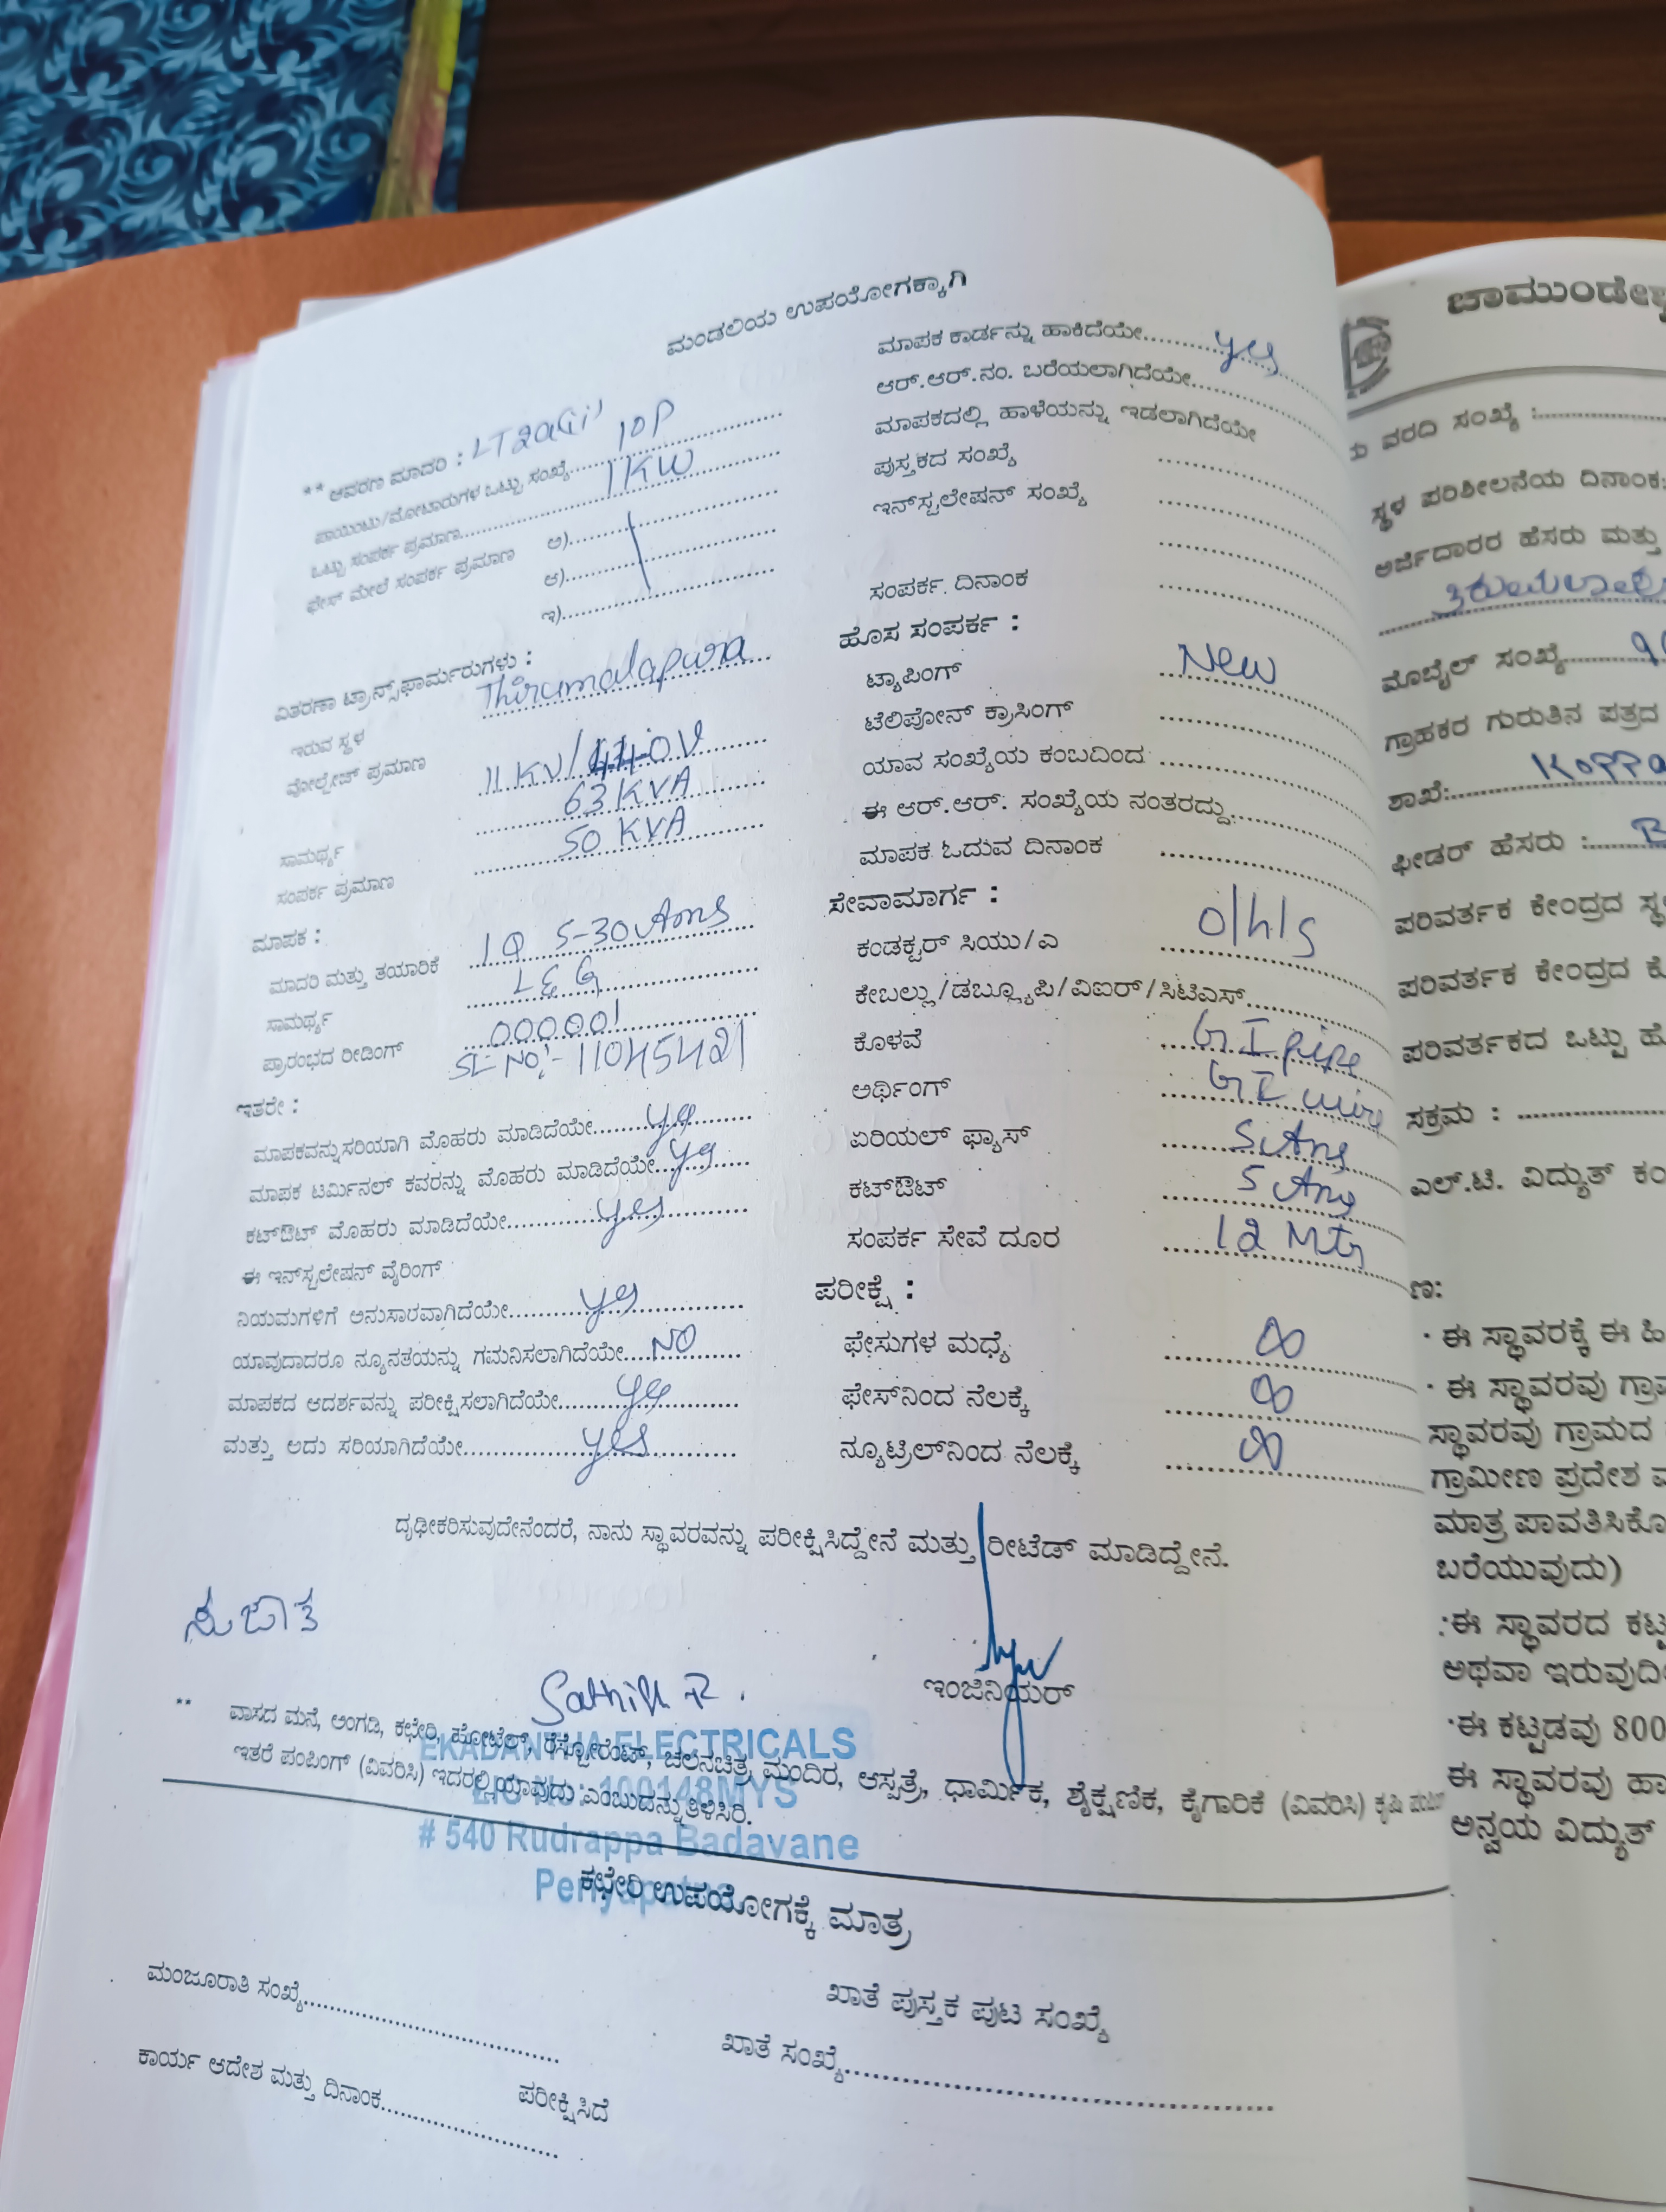 ಮಂಡಲಿಯ ಉಪಯೋಗಕ್ಕಾಗಿ
** ಆವರಣ ಮಾದರಿ : LT2a(i)
ಪಾಯಿಂಟು/ಮೋಟಾರುಗಳ ಒಟ್ಟು ಸಂಖ್ಯೆ 10P
ಒಟ್ಟು ಸಂಪರ್ಕ ಪ್ರಮಾಣ 1KW
ಫೇಸ್ ಮೇಲೆ ಸಂಪರ್ಕ ಪ್ರಮಾಣ ಅ)
ಆ)
ಇ)
ವಿತರಣಾ ಟ್ರಾನ್ಸ್‌ಫಾರ್ಮರುಗಳು :
ಇರುವ ಸ್ಥಳ Thirumalapura
ವೋಲ್ಟೇಜ್ ಪ್ರಮಾಣ 11KV/440V
ಸಾಮರ್ಥ್ಯ 63KVA
ಸಂಪರ್ಕ ಪ್ರಮಾಣ 50KVA
ಮಾಪಕ :
ಮಾದರಿ ಮತ್ತು ತಯಾರಿಕೆ 5-30
ಸಾಮರ್ಥ್ಯ L&G
ಪ್ರಾರಂಭದ ರೀಡಿಂಗ್ 000001
SL No:- 11045421
ಇತರೇ :
ಮಾಪಕವನ್ನುಸರಿಯಾಗಿ ಮೊಹರು ಮಾಡಿದೆಯೇ yes
ಮಾಪಕ ಟರ್ಮಿನಲ್ ಕವರನ್ನು ಮೊಹರು ಮಾಡಿದೆಯೇ yes
ಕಟ್‌ಔಟ್ ಮೊಹರು ಮಾಡಿದೆಯೇ yes
ಈ ಇನ್‌ಸ್ಟಲೇಷನ್ ವೈರಿಂಗ್
ನಿಯಮಗಳಿಗೆ ಅನುಸಾರವಾಗಿದೆಯೇ yes
ಯಾವುದಾದರೂ ನ್ಯೂನತೆಯನ್ನು ಗಮನಿಸಲಾಗಿದೆಯೇ NO
ಮಾಪಕದ ಆದರ್ಶವನ್ನು ಪರೀಕ್ಷಿಸಲಾಗಿದೆಯೇ yes
ಮತ್ತು ಅದು ಸರಿಯಾಗಿದೆಯೇ yes
ಮಾಪಕ ಕಾರ್ಡನ್ನು ಹಾಕಿದೆಯೇ yes
ಆರ್.ಆರ್.ನಂ. ಬರೆಯಲಾಗಿದೆಯೇ
ಮಾಪಕದಲ್ಲಿ ಹಾಳೆಯನ್ನು ಇಡಲಾಗಿದೆಯೇ
ಪುಸ್ತಕದ ಸಂಖ್ಯೆ
ಇನ್‌ಸ್ಟಲೇಷನ್ ಸಂಖ್ಯೆ
ಸಂಪರ್ಕ ದಿನಾಂಕ
ಹೊಸ ಸಂಪರ್ಕ :
ಟ್ಯಾಪಿಂಗ್ New
ಟೆಲಿಫೋನ್ ಕ್ರಾಸಿಂಗ್
ಯಾವ ಸಂಖ್ಯೆಯ ಕಂಬದಿಂದ
ಈ ಆರ್.ಆರ್. ಸಂಖ್ಯೆಯ ನಂತರದ್ದು
ಮಾಪಕ ಓದುವ ದಿನಾಂಕ
ಸೇವಾಮಾರ್ಗ :
ಕಂಡಕ್ಟರ್ ಸಿಯು/ಎ o/h/s
ಕೇಬಲ್ಲು/ಡಬ್ಲ್ಯೂಪಿ/ವಿಐರ್/ಸಿಟಿಎಸ್
ಕೊಳವೆ GI pipe
ಅರ್ಥಿಂಗ್ GI wire
ಏರಿಯಲ್ ಫ್ಯಾಸ್
ಕಟ್‌ಔಟ್
ಸಂಪರ್ಕ ಸೇವೆ ದೂರ 12
ಪರೀಕ್ಷೆ :
ಫೇಸುಗಳ ಮಧ್ಯೆ ∞
ಫೇಸ್‌ನಿಂದ ನೆಲಕ್ಕೆ ∞
ನ್ಯೂಟ್ರಲ್‌ನಿಂದ ನೆಲಕ್ಕೆ ∞
ದೃಢೀಕರಿಸುವುದೇನೆಂದರೆ, ನಾನು ಸ್ಥಾವರವನ್ನು ಪರೀಕ್ಷಿಸಿದ್ದೇನೆ ಮತ್ತು ರೀಟೆಡ್ ಮಾಡಿದ್ದೇನೆ.
ಸುಜಾತ
ಇಂಜಿನಿಯರ್
** ವಾಸದ ಮನೆ, ಅಂಗಡಿ, ಕಛೇರಿ, ಹೋಟೆಲ್, ರೆಸ್ಟೋರೆಂಟ್, ಚಲನಚಿತ್ರ ಮಂದಿರ, ಆಸ್ಪತ್ರೆ, ಧಾರ್ಮಿಕ, ಶೈಕ್ಷಣಿಕ, ಕೈಗಾರಿಕೆ (ವಿವರಿಸಿ) ಕೃಷಿ
ಇತರೆ ಪಂಪಿಂಗ್ (ವಿವರಿಸಿ) ಇದರಲ್ಲಿ ಯಾವುದು ಎಂಬುದನ್ನು ತಿಳಿಸಿರಿ.
EKADANTHA ELECTRICALS
100148MYS
# 540 Rudrappa Badavane
ಕಛೇರಿ ಉಪಯೋಗಕ್ಕೆ ಮಾತ್ರ
ಮಂಜೂರಾತಿ ಸಂಖ್ಯೆ
ಖಾತೆ ಪುಸ್ತಕ ಪುಟ ಸಂಖ್ಯೆ
ಖಾತೆ ಸಂಖ್ಯೆ
ಕಾರ್ಯ ಆದೇಶ ಮತ್ತು ದಿನಾಂಕ
ಪರೀಕ್ಷಿಸಿದೆ
ವರದಿ ಸಂಖ್ಯೆ :
ಸ್ಥಳ ಪರಿಶೀಲನೆಯ ದಿನಾಂಕ:
ಅರ್ಜಿದಾರರ ಹೆಸರು ಮತ್ತು
ಮೊಬೈಲ್ ಸಂಖ್ಯೆ
ಗ್ರಾಹಕರ ಗುರುತಿನ ಪತ್ರದ
ಶಾಖೆ:
ಫೀಡರ್ ಹೆಸರು :
ಪರಿವರ್ತಕ ಕೇಂದ್ರದ
ಪರಿವರ್ತಕ ಕೇಂದ್ರದ
ಪರಿವರ್ತಕದ ಒಟ್ಟು
ಸಕ್ರಮ :
ಎಲ್.ಟಿ. ವಿದ್ಯುತ್
· ಈ ಸ್ಥಾವರಕ್ಕೆ ಈ
· ಈ ಸ್ಥಾವರವು
ಸ್ಥಾವರವು ಗ್ರಾಮದ
ಗ್ರಾಮೀಣ ಪ್ರದೇಶ
ಮಾತ್ರ
ಬರೆಯುವುದು)
ಈ ಸ್ಥಾವರದ
ಅಥವಾ
·ಈ ಕಟ್ಟಡವು 800
ಈ ಸ್ಥಾವರವು
ಅನ್ವಯ ವಿದ್ಯುತ್